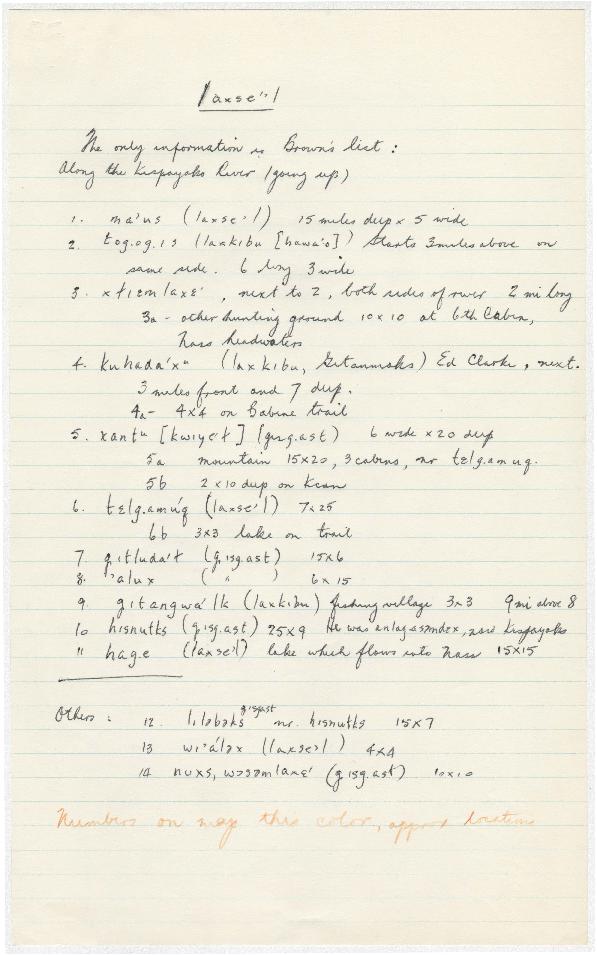 laxse'l
The only information is Brown's list:
Along the Kispayaks River (going up)
1. ma'us (laxse'l) 15 miles deep x 5 wide
2. tog.og.is (laxkibu [hawa'o]) starts 3 miles above on
same side. 6 long 3 wide
3. , next to 2, both sides of river 2 mi long
3a - other hunting ground 10 x 10 at 6th Cabin,
Nass headwaters
4. kuhada'xᵘ (laxkibu, Gitanmaks) Ed Clarke, next.
3 miles front and 7 deep.
4a - 4x4 on Babine trail
5. xantᵘ [kwiye't] (gisg.ast) 6 wide x 20 deep
5a mountain 15x20, 3 cabins, nr tɛlg.amuq.
5b 2 x 10 deep on
6. tɛlg.amu'q (laxse'l) 7x25
6b 3x3 lake on trail
7. gitluda't (g.isg.ast) 15x6
8. 'alux ( " ) 6 x 15
9. gitangwa'lk (laxkibu) fishing village 3x3 9 mi above 8
10 hisnutks (g.isg.ast) 25x9 He was , now Kispayaks
11 hag.e (laxse'l) lake which flows into Nass 15x15
Others: 12. lilabaks gisgast nr. hisnutks 15x7
13 wi'álax (laxse'l) 4x4
14 nuxs, (g.isg.ast) 10x10
Numbers on map this color, approx locations